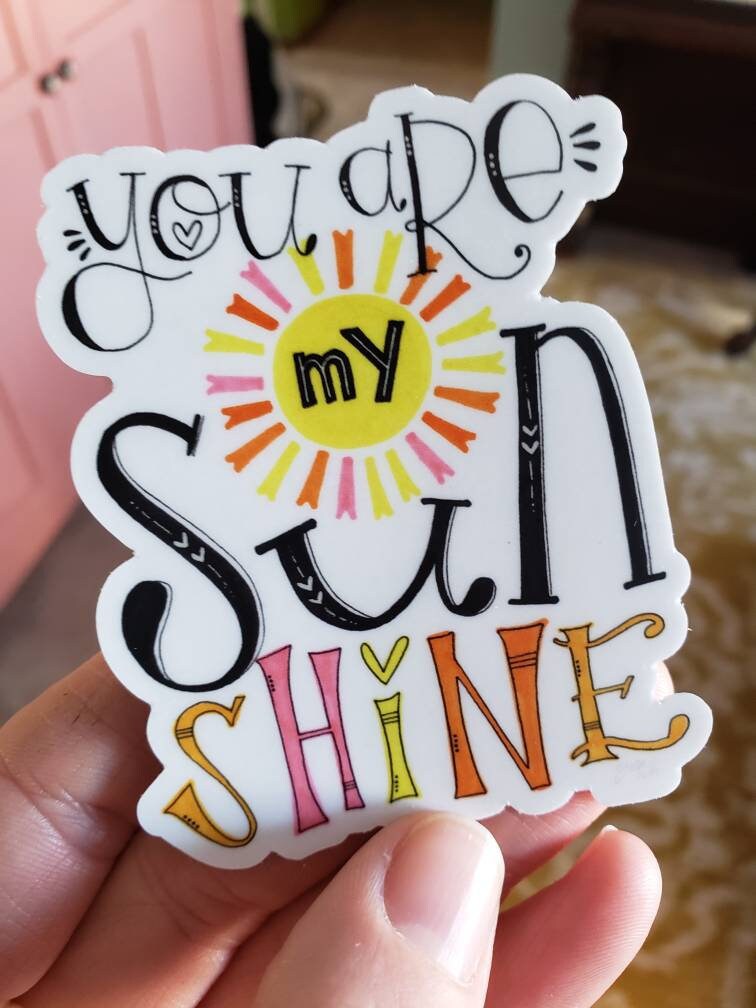 you aRe
my
Sun
SHiNE